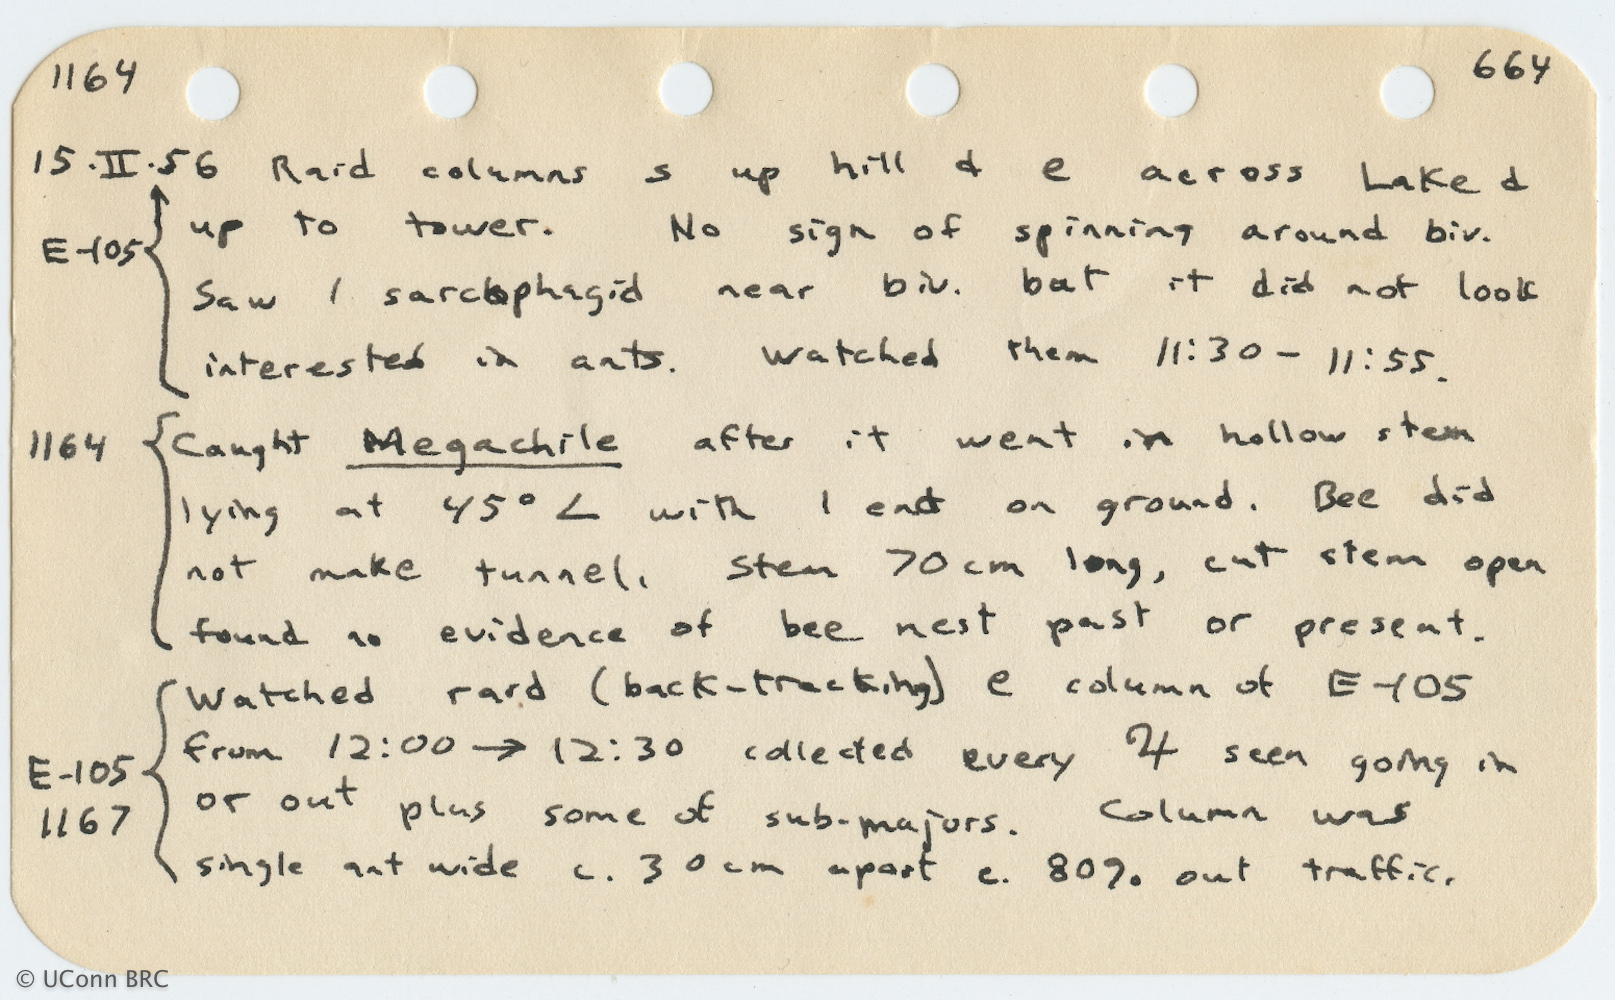 1164 664
15.II.56 Raid columns s up hill & e across Lake &
up to tower. No sign of spinning around biv.
E-105
Saw 1 sarcophagid near biv. but it did not look
interested in ants. Watched them 11:30 - 11:55.
1164 Caught Megachile after it went in hollow stem
lying at 45° ∠ with 1 end on ground. Bee did
not make tunnel. Stem 70 cm long, cut stem open
found no evidence of bee nest past or present.
Watched raid (back-tracking) e column of E-105
from 12:00 → 12:30 collected every ♃ seen going in
E-105
or out plus some of sub-majors. Column was
1167
single ant wide c. 30 cm apart c. 80% out traffic.
© UConn BRC